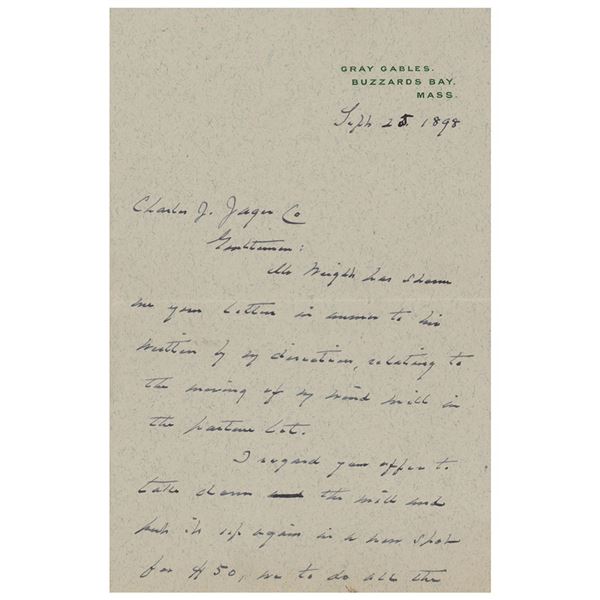 GRAY GABLES.
BUZZARDS BAY.
MASS.
Sept 25 1898
Charles J. Jager Co
Gentlemen:
Mr Wright has shown
me your letter in answer to his
written by my direction, relating to
the moving of my wind mill in
the pasture lot.
I regard your offer to
take down the mill and
put it up again in a new spot
for $50, we to do all the